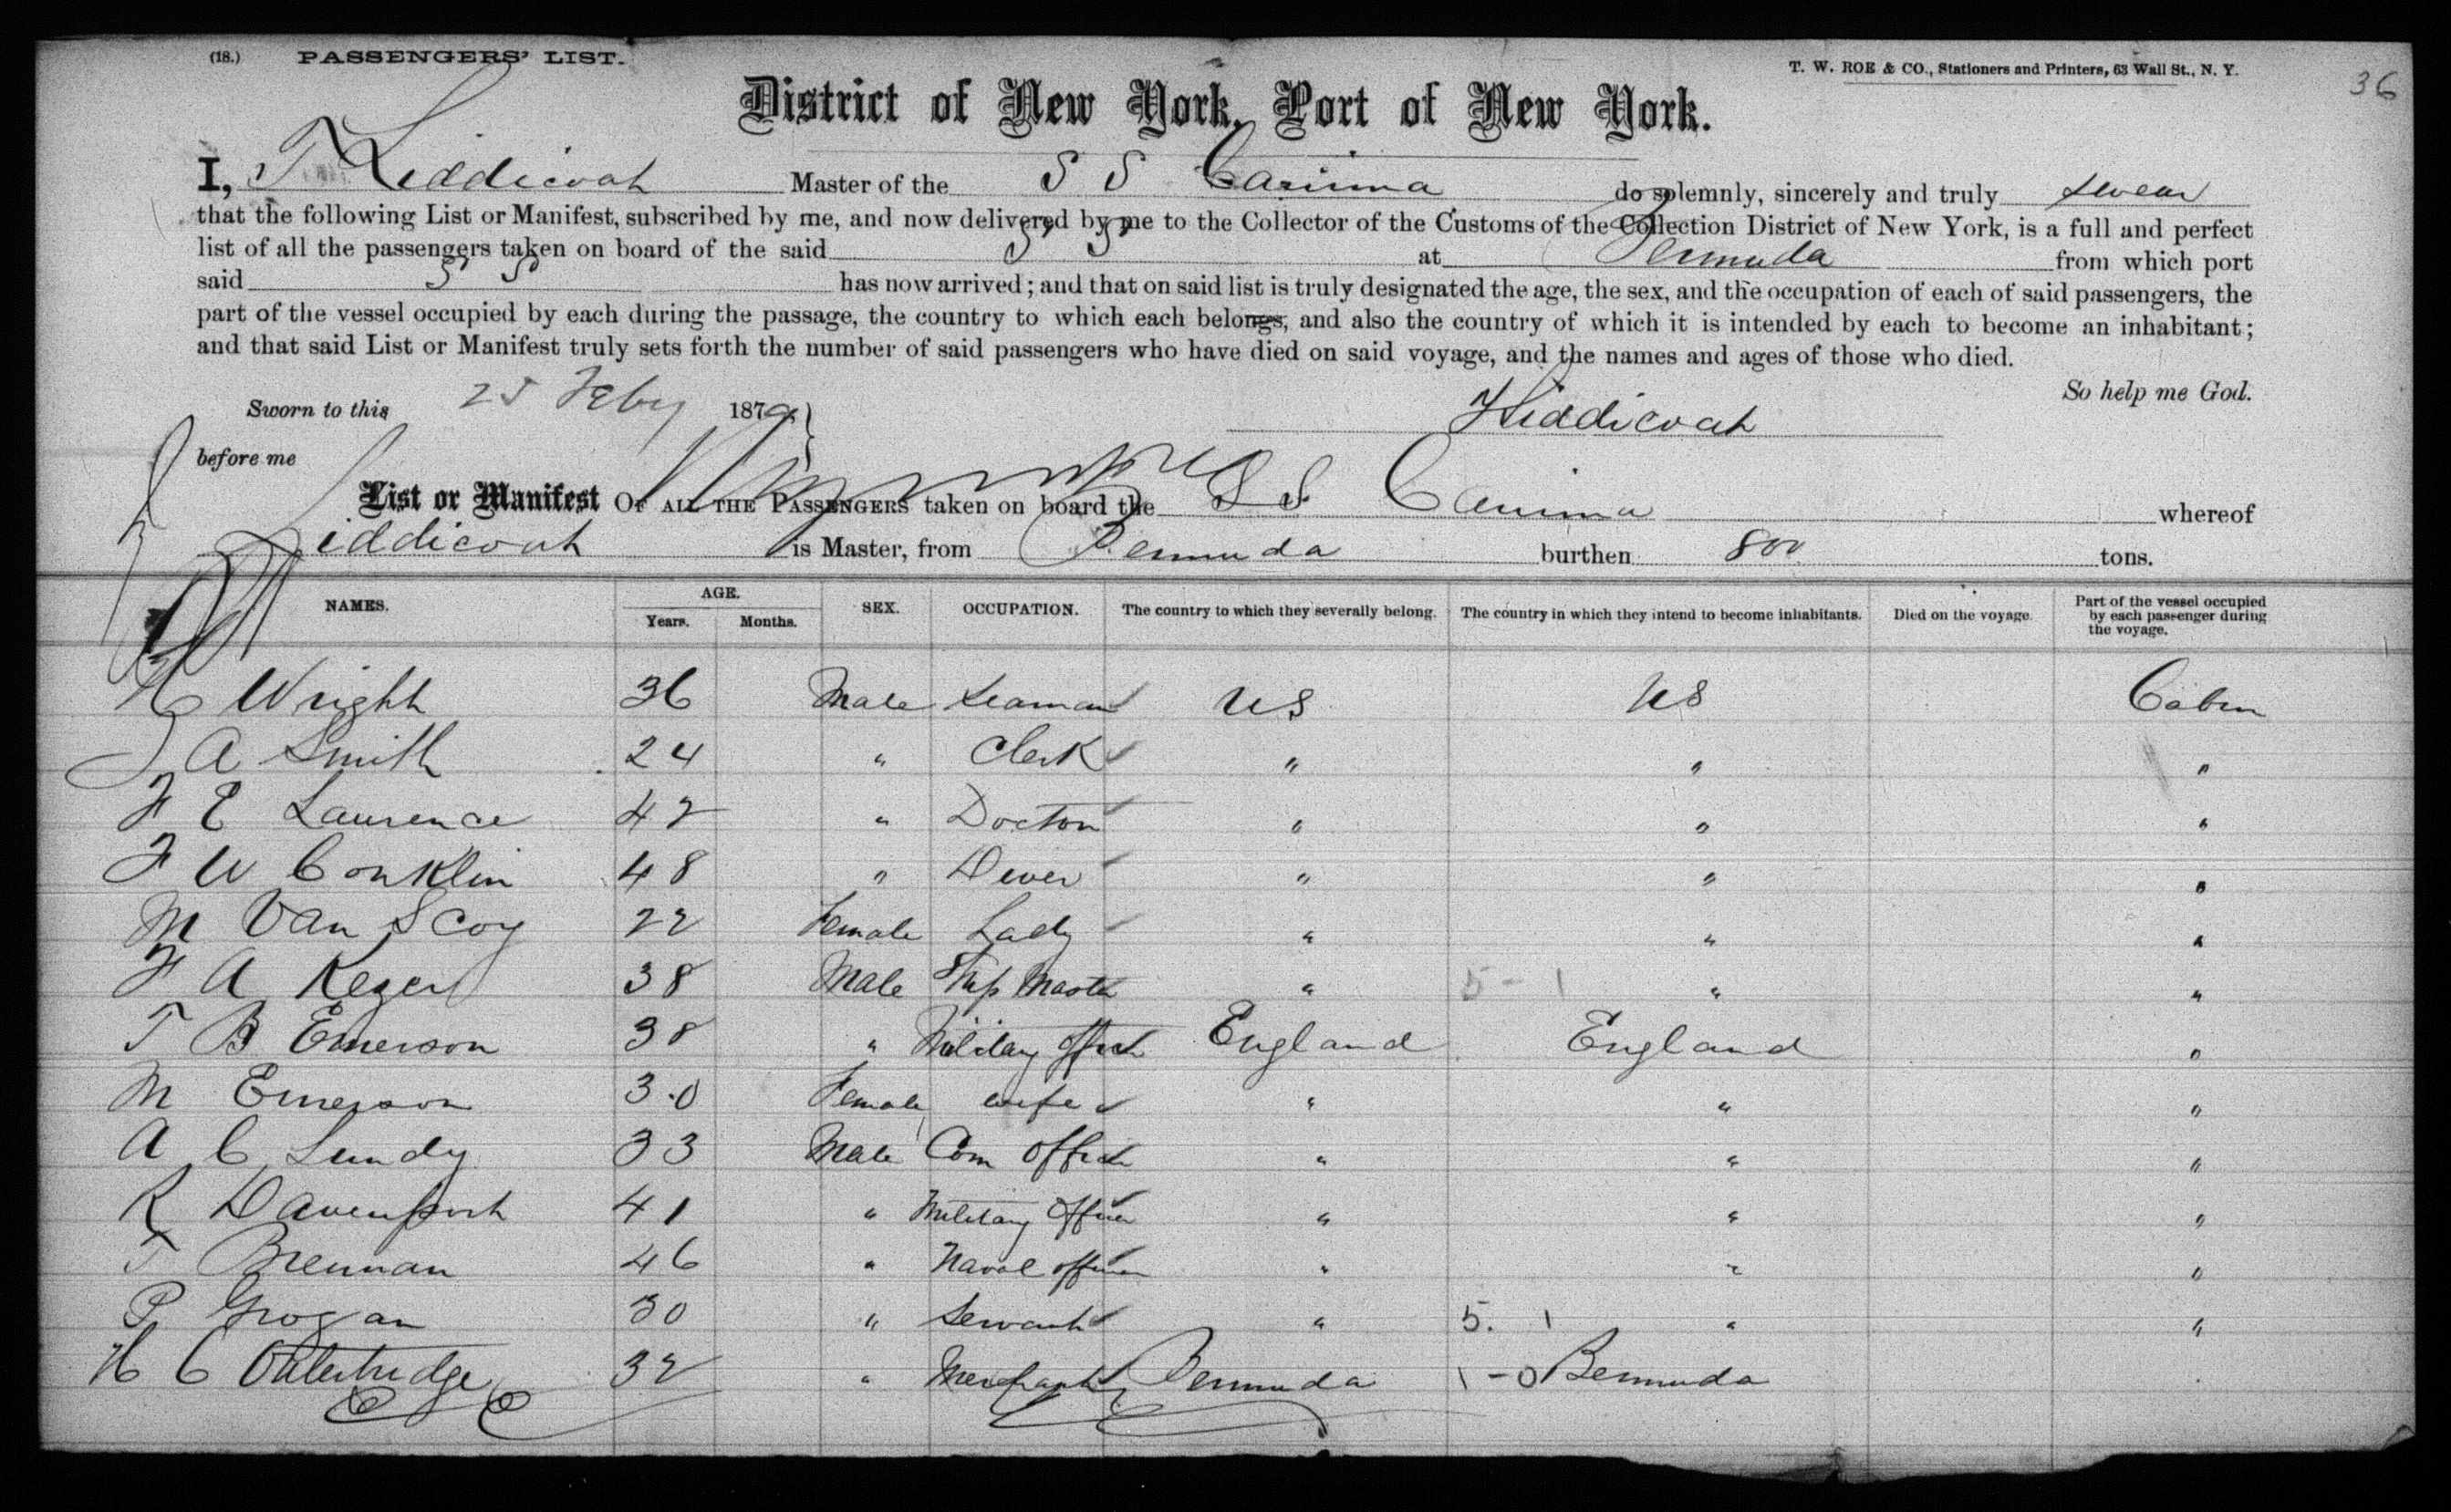 (18.) PASSENGERS' LIST.
T. W. ROE & CO., Stationers and Printers, 63 Wall St., N. Y.
36
District of New York, Port of New York.
I, T Liddicoat Master of the S S Canima do solemnly, sincerely and truly swear
that the following List or Manifest, subscribed by me, and now delivered by me to the Collector of the Customs of the Collection District of New York, is a full and perfect
list of all the passengers taken on board of the said S S at Bermuda from which port
said S S has now arrived; and that on said list is truly designated the age, the sex, and the occupation of each of said passengers, the
part of the vessel occupied by each during the passage, the country to which each belongs, and also the country of which it is intended by each to become an inhabitant;
and that said List or Manifest truly sets forth the number of said passengers who have died on said voyage, and the names and ages of those who died.
So help me God.
Sworn to this 25 Feby 1879
Liddicoat
before me
List or Manifest OF ALL THE PASSENGERS taken on board the S S Canima whereof
Liddicoat is Master, from Bermuda burthen 800 tons.
NAMES. AGE. Years. Months. SEX. OCCUPATION. The country to which they severally belong. The country in which they intend to become inhabitants. Died on the voyage. Part of the vessel occupied by each passenger during the voyage.
H Wright 36 Male Seaman US US Cabin
A Smith 24 " Clerk " " "
F E Laurence 42 " Doctor " " "
F W Conklin 48 " " " "
M Van Scoy 22 Female Lady " " "
F A Kezer 38 Male Ship Master " 5-1 " "
T B Emerson 38 " Military Officer England England "
M Emerson 30 Female wife " " "
A C Lundy 33 Male Com Officer " " "
R Davenport 41 " Military Officer " " "
T Brennan 46 " Naval officer " " "
P Grogan 30 " Servant " 5. 1 " "
H C Outerbridge 32 " Merchant Bermuda 1-0 Bermuda